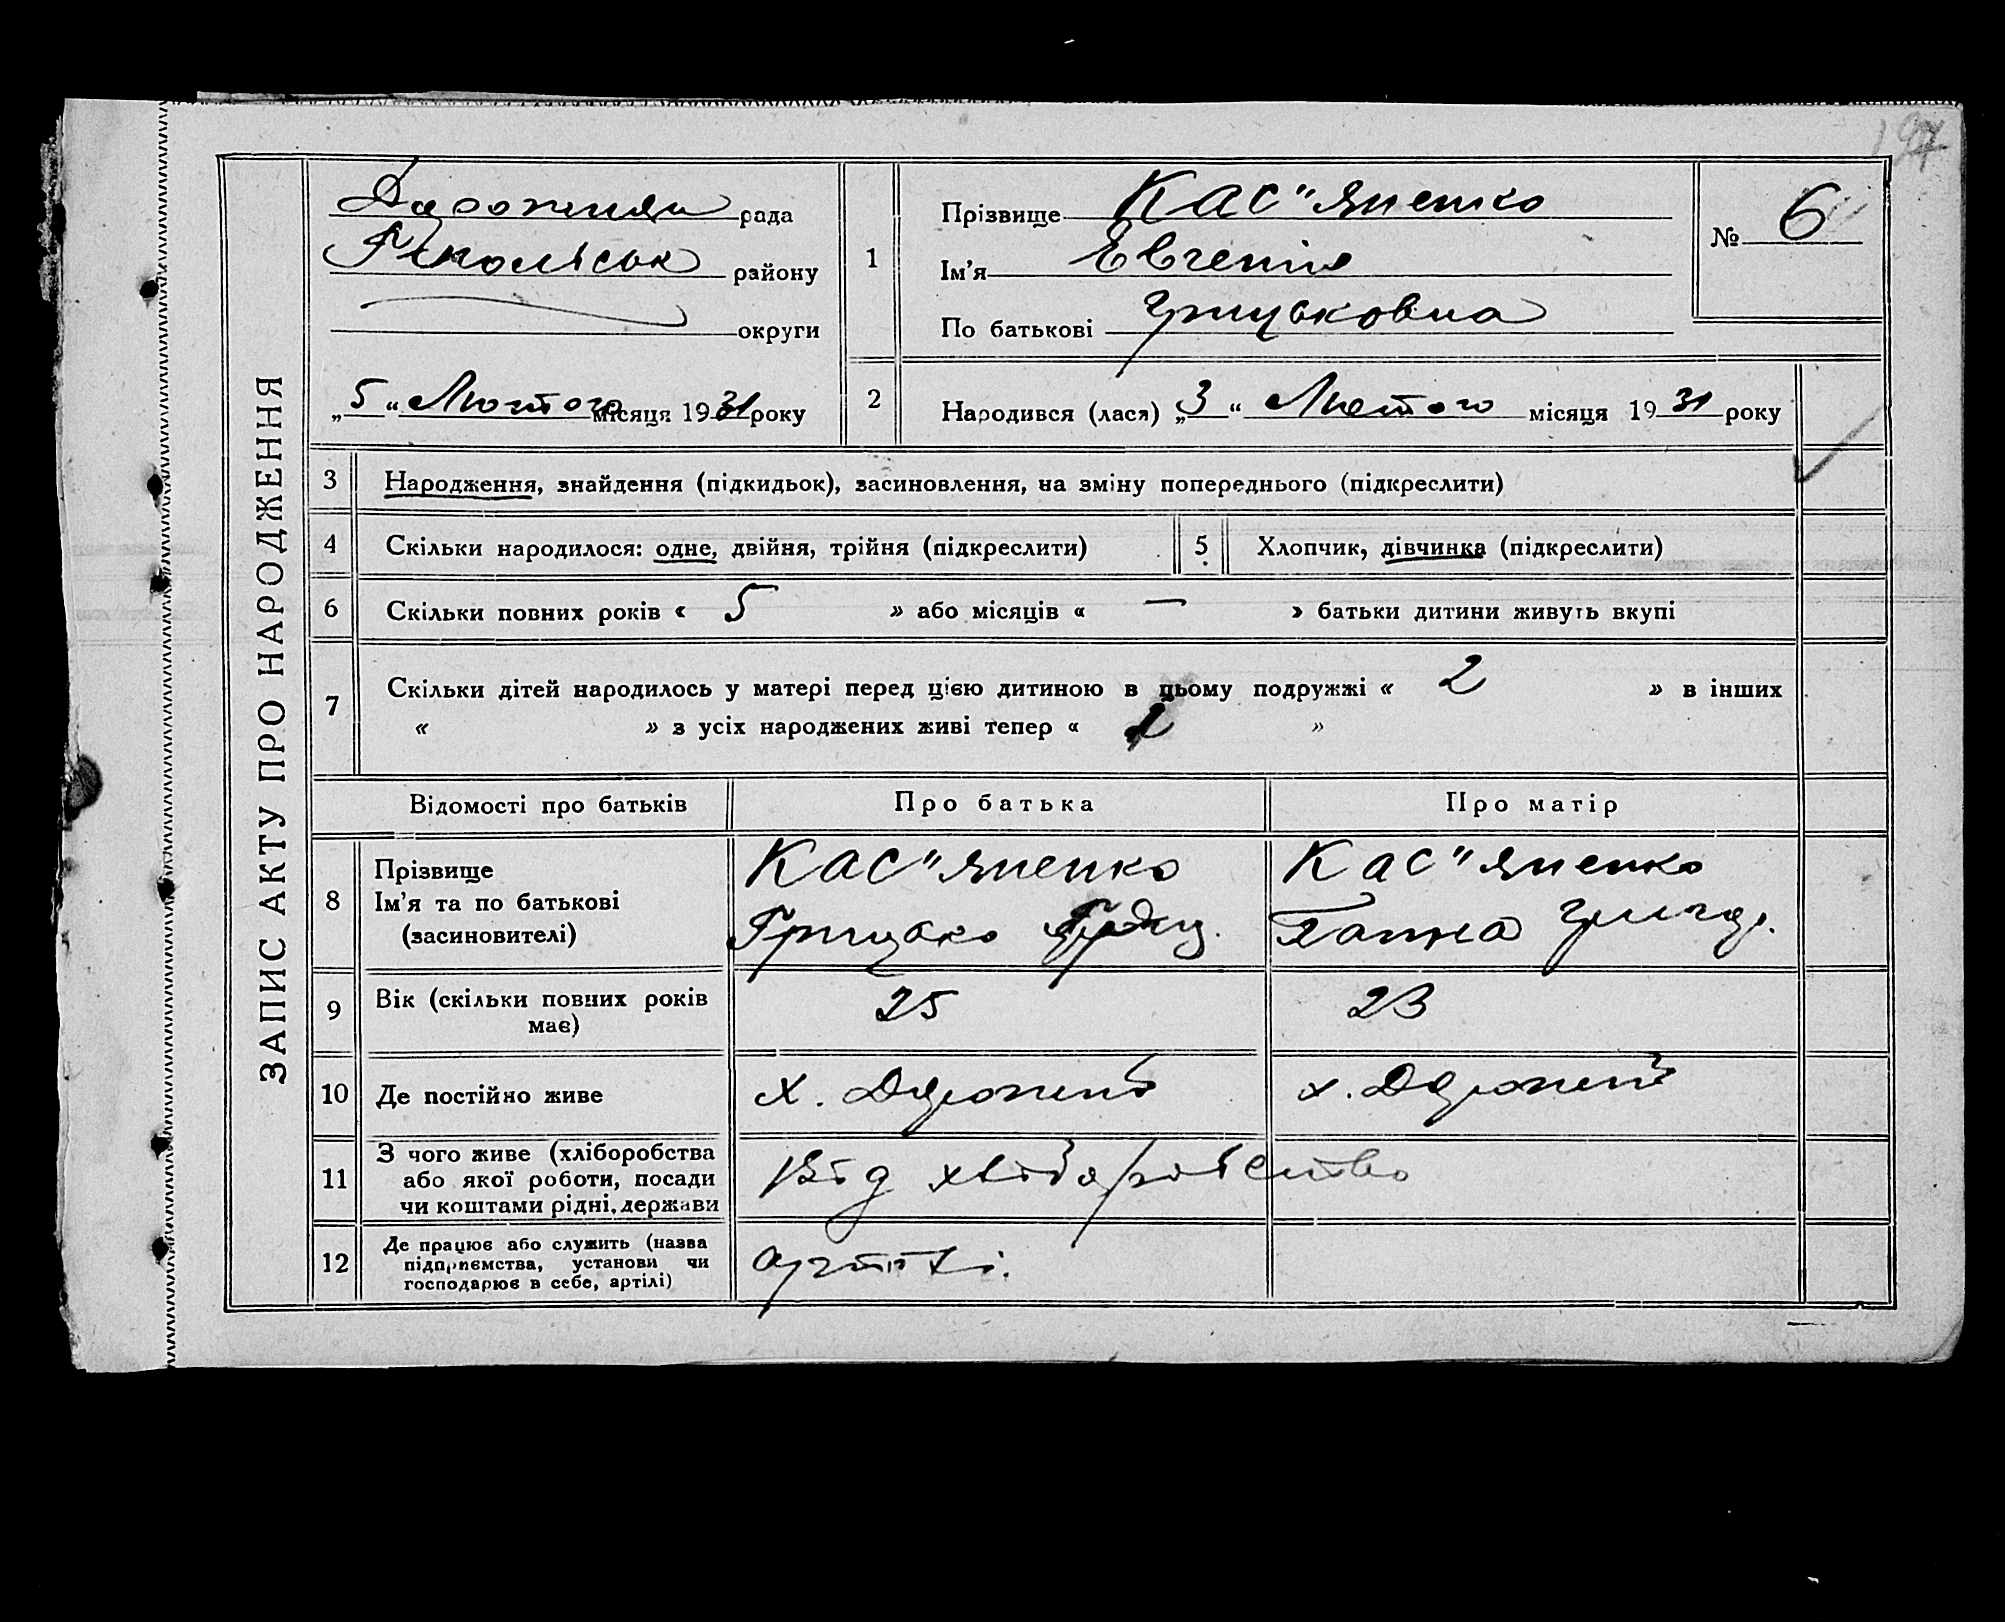 197
ЗАПИС АКТУ ПРО НАРОДЖЕННЯ
рада
району
округи
„5“ Лютого місяця 1931 року
1
Прізвище КАС"яненко
Ім'я Евгенія
По батькові Грицьковна
№ 6
2
Народився (лася) „3“ Лютого місяця 1931 року
3
Народження, знайдення (підкидьок), засиновлення, на зміну попереднього (підкреслити)
4
Скільки народилося: одне, двійня, трійня (підкреслити)
5
Хлопчик, дівчинка (підкреслити)
6
Скільки повних років « 5 » або місяців « — » батьки дитини живуть вкупі
7
Скільки дітей народилось у матері перед цією дитиною в цьому подружжі « 2 » в інших
« » з усіх народжених живі тепер « »
Відомості про батьків
Про батька
Про матір
8
Прізвище
Ім'я та по батькові
(засиновителі)
КАС"яненко
Грицько
КАС"яненко
Ганна Григор.
9
Вік (скільки повних років
має)
25
23
10
Де постійно живе
х.
х.
11
З чого живе (хліборобства
або якої роботи, посади
чи коштами рідні, держави
Від хліборобство
12
Де працює або служить (назва
підприємства, установи чи
господарює в себе, артілі)
артілі.